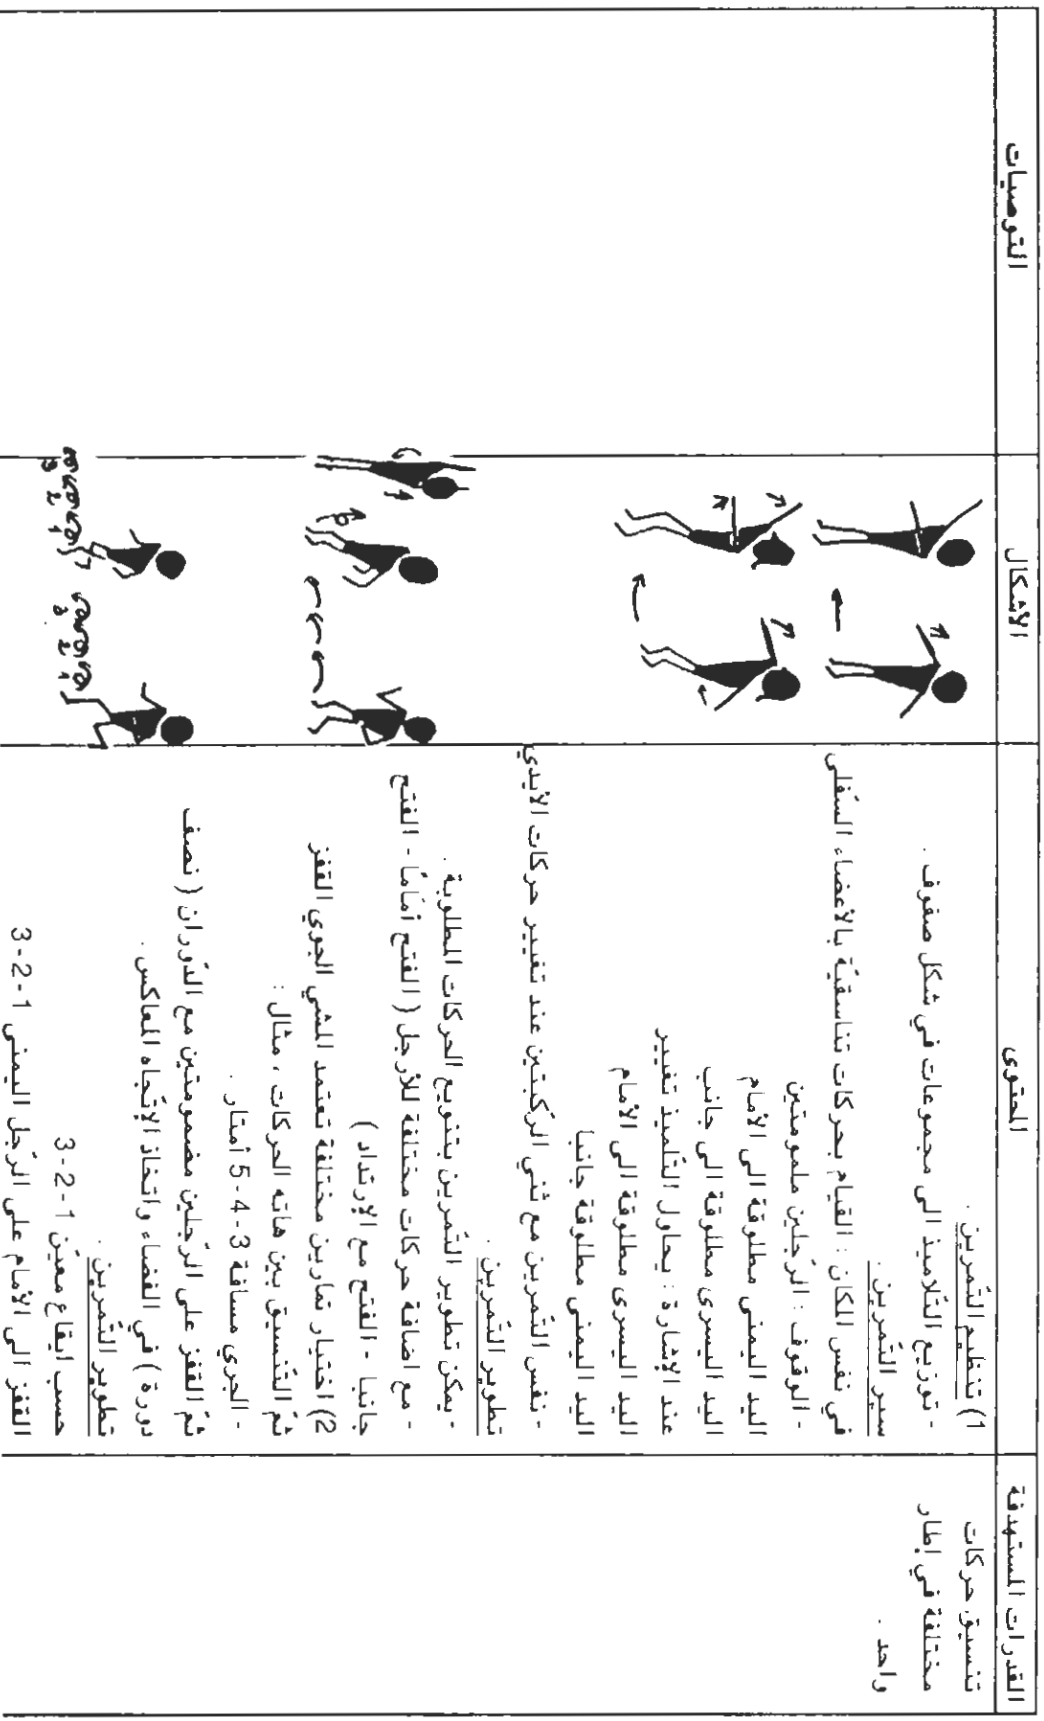 القدرات المستهدفة
المحتوى
الأشكال
التوصيات
تنسيق حركات
مختلفة في إطار
واحد .
1) تنظيم التّمرين .
- توزيع التّلاميذ الى مجموعات في شكل صفوف .
سير التّمرين .
في نفس المكان : القيام بحركات تناسقيّة بالأعضاء السّفلى
- الوقوف : الرّجلين ملمومتين
اليد اليمنى مطلوقة الى الأمام
اليد اليسرى مطلوقة الى جانب
عند الإشارة : يحاول التّلميذ تغيير
اليد اليسرى مطلوقة الى الأمام
اليد اليمنى مطلوقة جانبا
- نفس التّمرين مع ثني الرّكبتين عند تغيير حركات الأيدي
تطوير التّمرين .
- يمكن تطوير التّمرين بتنويع الحركات المطلوبة .
- مع اضافة حركات مختلفة للأرجل ( الفتح أمامًا - الفتح
جانبا - الفتح مع الإرتداد )
2) اختيار تمارين مختلفة تعتمد المشي الجري القفز
ثمّ التّنسيق بين هاته الحركات ، مثال :
- الجري مسافة 3-4-5 أمتار .
ثمّ القفز على الرّجلين مضمومتين مع الدّوران ( نصف
دورة ) في الفضاء واتخاذ الإتّجاه المعاكس .
تطوير التّمرين .
حسب ايقاع معيّن 1-2-3
القفز الى الأمام على الرّجل اليمنى 1-2-3
1 2 3
1 2 3